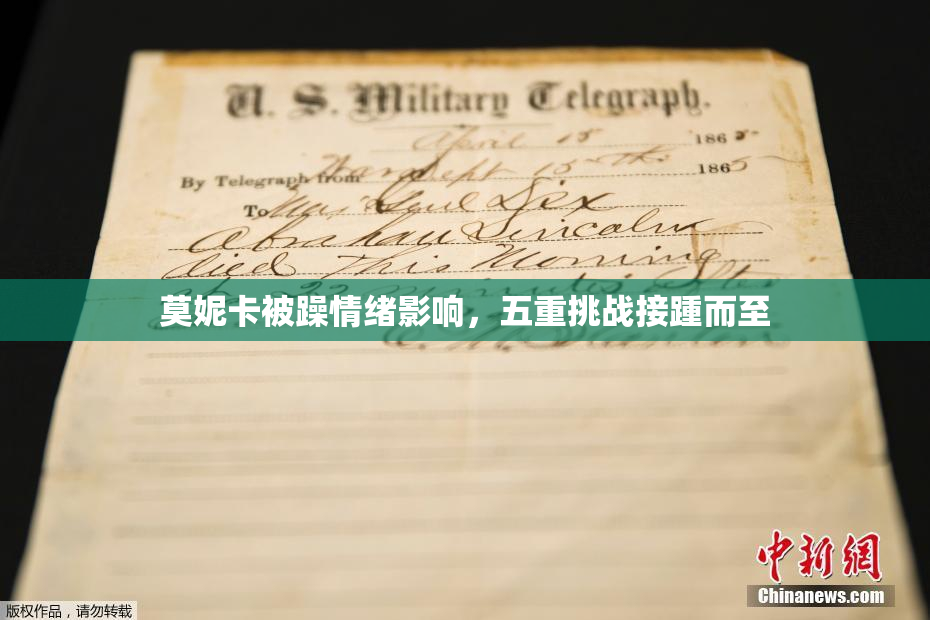 U. S. Military Telegraph.
April 15 1865
By Telegraph from War Dept 15th 1865
To Maj Genl Dix
Abraham Lincoln
died This Morning
at 22 minutes after
莫妮卡被躁情绪影响，五重挑战接踵而至
E. M. Stanton
中新网
Chinanews.com
版权作品，请勿转载